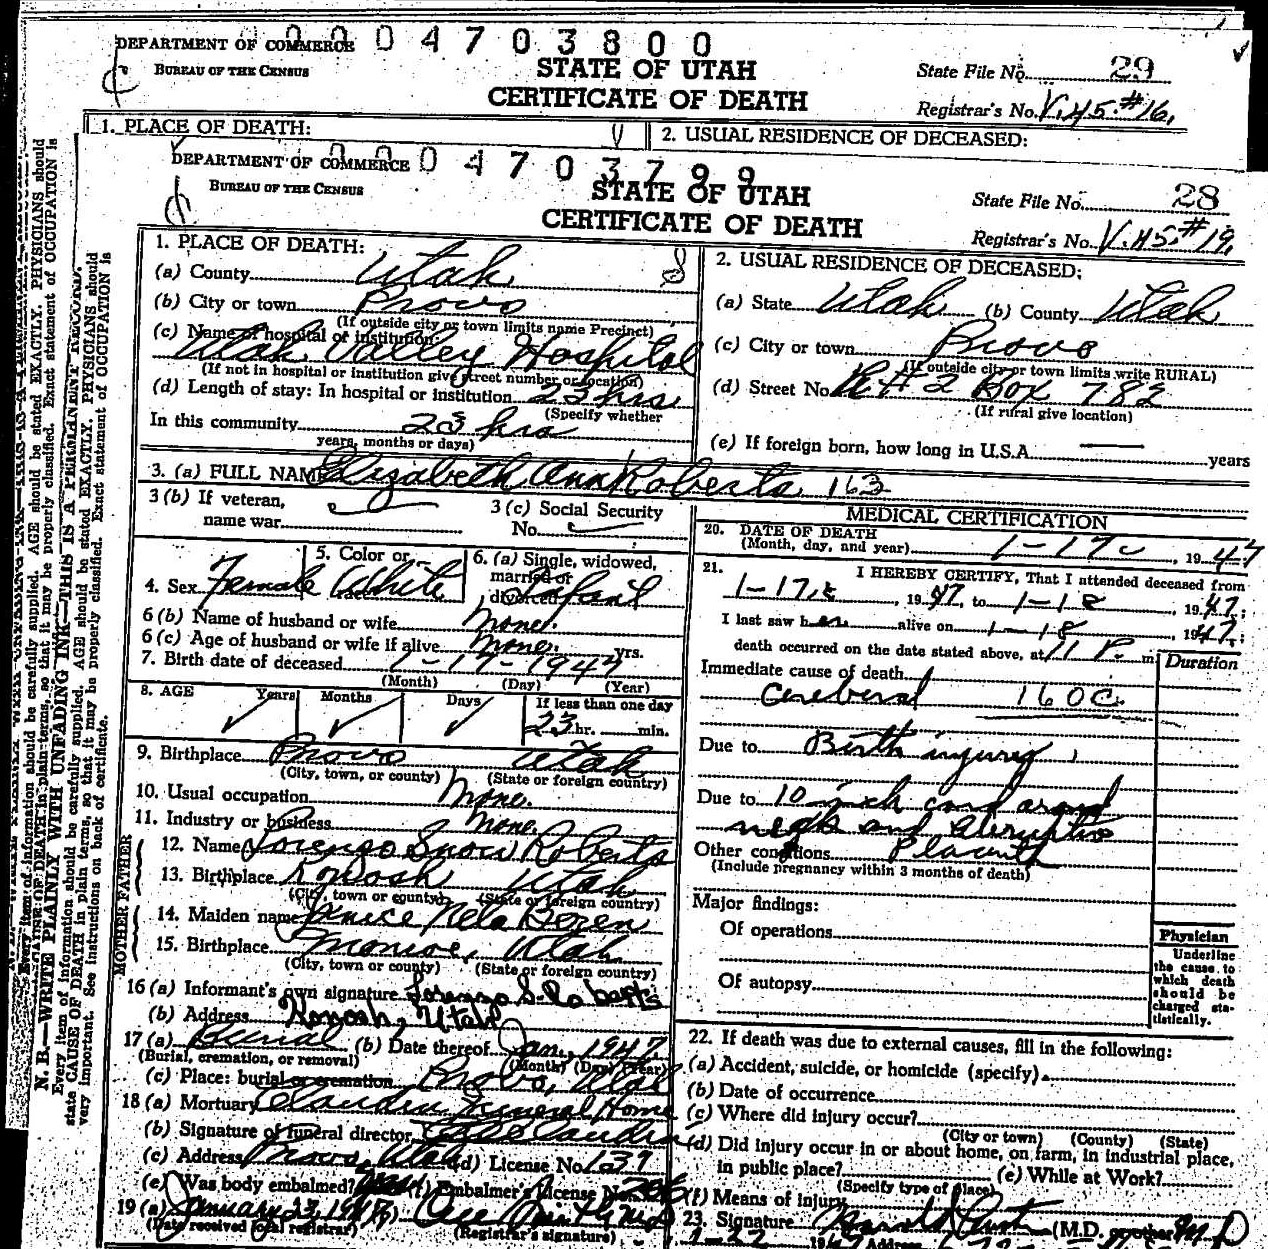 0004703800
DEPARTMENT OF COMMERCE
BUREAU OF THE CENSUS
STATE OF UTAH
CERTIFICATE OF DEATH
State File No. 29
Registrar's No. V.H5.#16.
1. PLACE OF DEATH:
2. USUAL RESIDENCE OF DECEASED:
0004703799
DEPARTMENT OF COMMERCE
BUREAU OF THE CENSUS
STATE OF UTAH
CERTIFICATE OF DEATH
State File No. 28
Registrar's No. V.H5.#19.
1. PLACE OF DEATH:
(a) County Utah
(b) City or town Provo
(If outside city or town limits name Precinct)
(c) Name of hospital or institution:
Utah Valley Hospital
(If not in hospital or institution give street number or location)
(d) Length of stay: In hospital or institution 23 hrs
(Specify whether
In this community 23 hrs
years, months or days)
2. USUAL RESIDENCE OF DECEASED:
(a) State Utah (b) County Utah
(c) City or town Provo
(If outside city or town limits write RURAL)
(d) Street No. R #2 Box 782
(If rural give location)
(e) If foreign born, how long in U.S.A. years
3. (a) FULL NAME Elizabeth Ann Roberts 163
3 (b) If veteran,
name war
3 (c) Social Security
No.
4. Sex Female
5. Color or White
6. (a) Single, widowed,
married or
divorced Infant
6 (b) Name of husband or wife None.
6 (c) Age of husband or wife if alive None. yrs.
7. Birth date of deceased 1-17-1947
(Month) (Day) (Year)
8. AGE Years Months Days If less than one day
23 hr. min.
9. Birthplace Provo Utah
(City, town, or county) (State or foreign country)
10. Usual occupation None.
11. Industry or business None.
FATHER
12. Name Lorenzo Snow Roberts
13. Birthplace Kanosh Utah
(City, town or county) (State or foreign country)
MOTHER
14. Maiden name Janice Nela
15. Birthplace Monroe, Utah
(City, town or county) (State or foreign country)
16 (a) Informant's own signature Lorenzo S. Roberts
(b) Address Kanosh, Utah
17 (a) Burial (b) Date thereof Jan., 1947
(Burial, cremation, or removal) (Month) (Day) (Year)
(c) Place: burial or cremation Provo, Utah
18 (a) Mortuary Claudin Funeral Home
(b) Signature of funeral director Claudin
(c) Address Provo, Utah (d) License No. 139
(e) Was body embalmed? (f) Embalmer's License No.
19 (a) January 23, 1947
(Date received local registrar) (Registrar's signature)
MEDICAL CERTIFICATION
20. DATE OF DEATH
(Month, day, and year) 1-17- 1947
21. I HEREBY CERTIFY, That I attended deceased from
1-17, 1947, to 1-18, 1947;
I last saw her alive on 1-18, 1947;
death occurred on the date stated above, at 11 P. m
Duration
Immediate cause of death
Cerebral 160C
Due to Birth injury
Due to 10 inch cord around
neck and abruptio
Other conditions Placenta
(Include pregnancy within 3 months of death)
Major findings:
Of operations
Of autopsy
Physician
Underline
the cause to
which death
should be
charged sta-
tistically.
22. If death was due to external causes, fill in the following:
(a) Accident, suicide, or homicide (specify)
(b) Date of occurrence
(c) Where did injury occur?
(City or town) (County) (State)
(d) Did injury occur in or about home, on farm, in industrial place,
in public place? (e) While at Work?
(Specify type of place)
(f) Means of injury
23. Signature (M.D. or other) M D
1-22 1947 Address
N. B.—WRITE PLAINLY WITH UNFADING INK—THIS IS A PERMANENT RECORD.
Every item of information should be carefully supplied. AGE should be stated EXACTLY. PHYSICIANS should
state CAUSE OF DEATH in plain terms, so that it may be properly classified. Exact statement of OCCUPATION is
very important. See instructions on back of certificate.